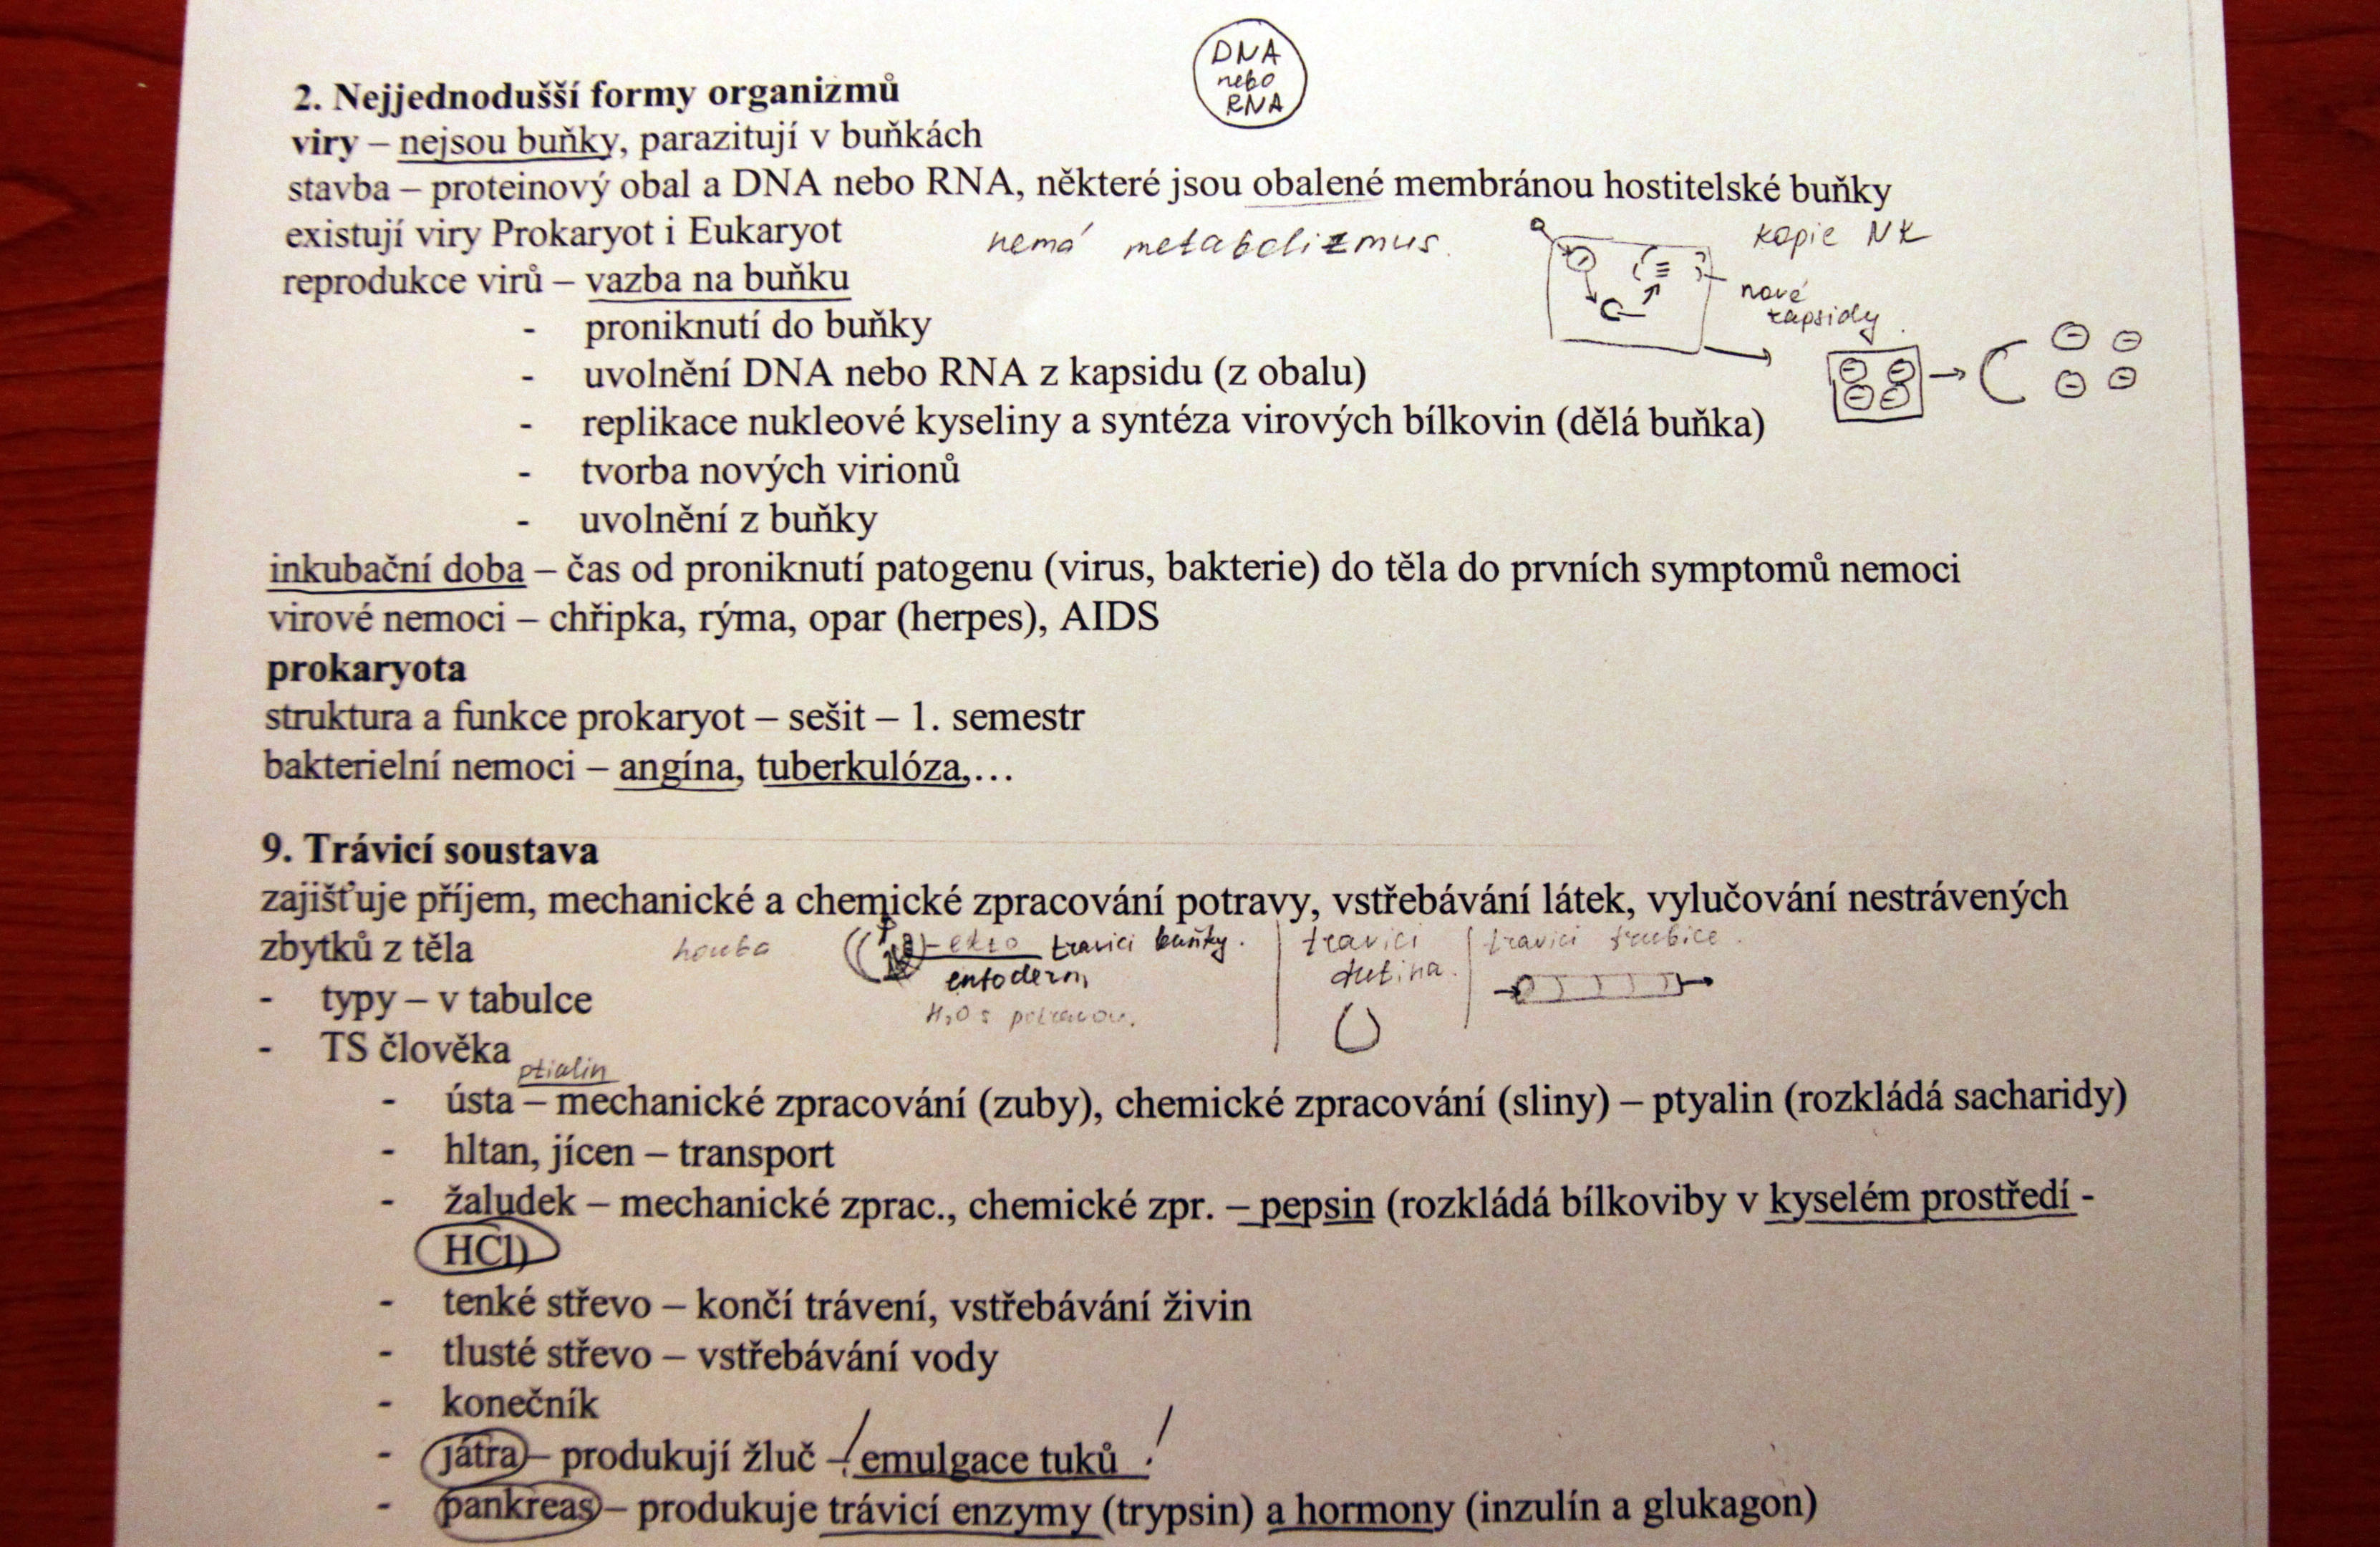 DNA
nebo
RNA
2. Nejjednodušší formy organizmů
viry – nejsou buňky, parazitují v buňkách
stavba – proteinový obal a DNA nebo RNA, některé jsou obalené membránou hostitelské buňky
existují viry Prokaryot i Eukaryot
nemá metabolizmus.
kopie NK
reprodukce virů – vazba na buňku
nové
kapsidy
- proniknutí do buňky
- uvolnění DNA nebo RNA z kapsidu (z obalu)
- replikace nukleové kyseliny a syntéza virových bílkovin (dělá buňka)
- tvorba nových virionů
- uvolnění z buňky
inkubační doba – čas od proniknutí patogenu (virus, bakterie) do těla do prvních symptomů nemoci
virové nemoci – chřipka, rýma, opar (herpes), AIDS
prokaryota
struktura a funkce prokaryot – sešit – 1. semestr
bakterielní nemoci – angína, tuberkulóza,…
9. Trávicí soustava
zajišťuje příjem, mechanické a chemické zpracování potravy, vstřebávání látek, vylučování nestrávených
zbytků z těla
houba
ekto travici buňky.
entoderm
H2O s potravou.
travici
dutina.
travici trubice.
- typy – v tabulce
- TS člověka
ptialin
- ústa – mechanické zpracování (zuby), chemické zpracování (sliny) – ptyalin (rozkládá sacharidy)
- hltan, jícen – transport
- žaludek – mechanické zprac., chemické zpr. – pepsin (rozkládá bílkoviby v kyselém prostředí -
HCl)
- tenké střevo – končí trávení, vstřebávání živin
- tlusté střevo – vstřebávání vody
- konečník
- játra – produkují žluč – ! emulgace tuků !
- pankreas – produkuje trávicí enzymy (trypsin) a hormony (inzulín a glukagon)